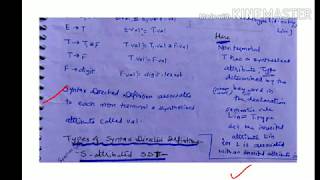 Made with
KINEMASTER
E → T
E.val := T.val
T → T * F
T.val := T.val * F.val
T → F
T.val = F.val
F → digit
F.val := digit.lexval
Syntax Directed Definition associates
to each non terminal a synthesized
attribute called val.
Types of Syntax Directed Definition
S-attributed SDT
Here
Non terminal
T has a synthesized
attribute Type
determined by the
key word in
the declaration
semantic rule
L.in = T.type
set the inherited
attribute L.in
for L is associated
with an inherited attribute